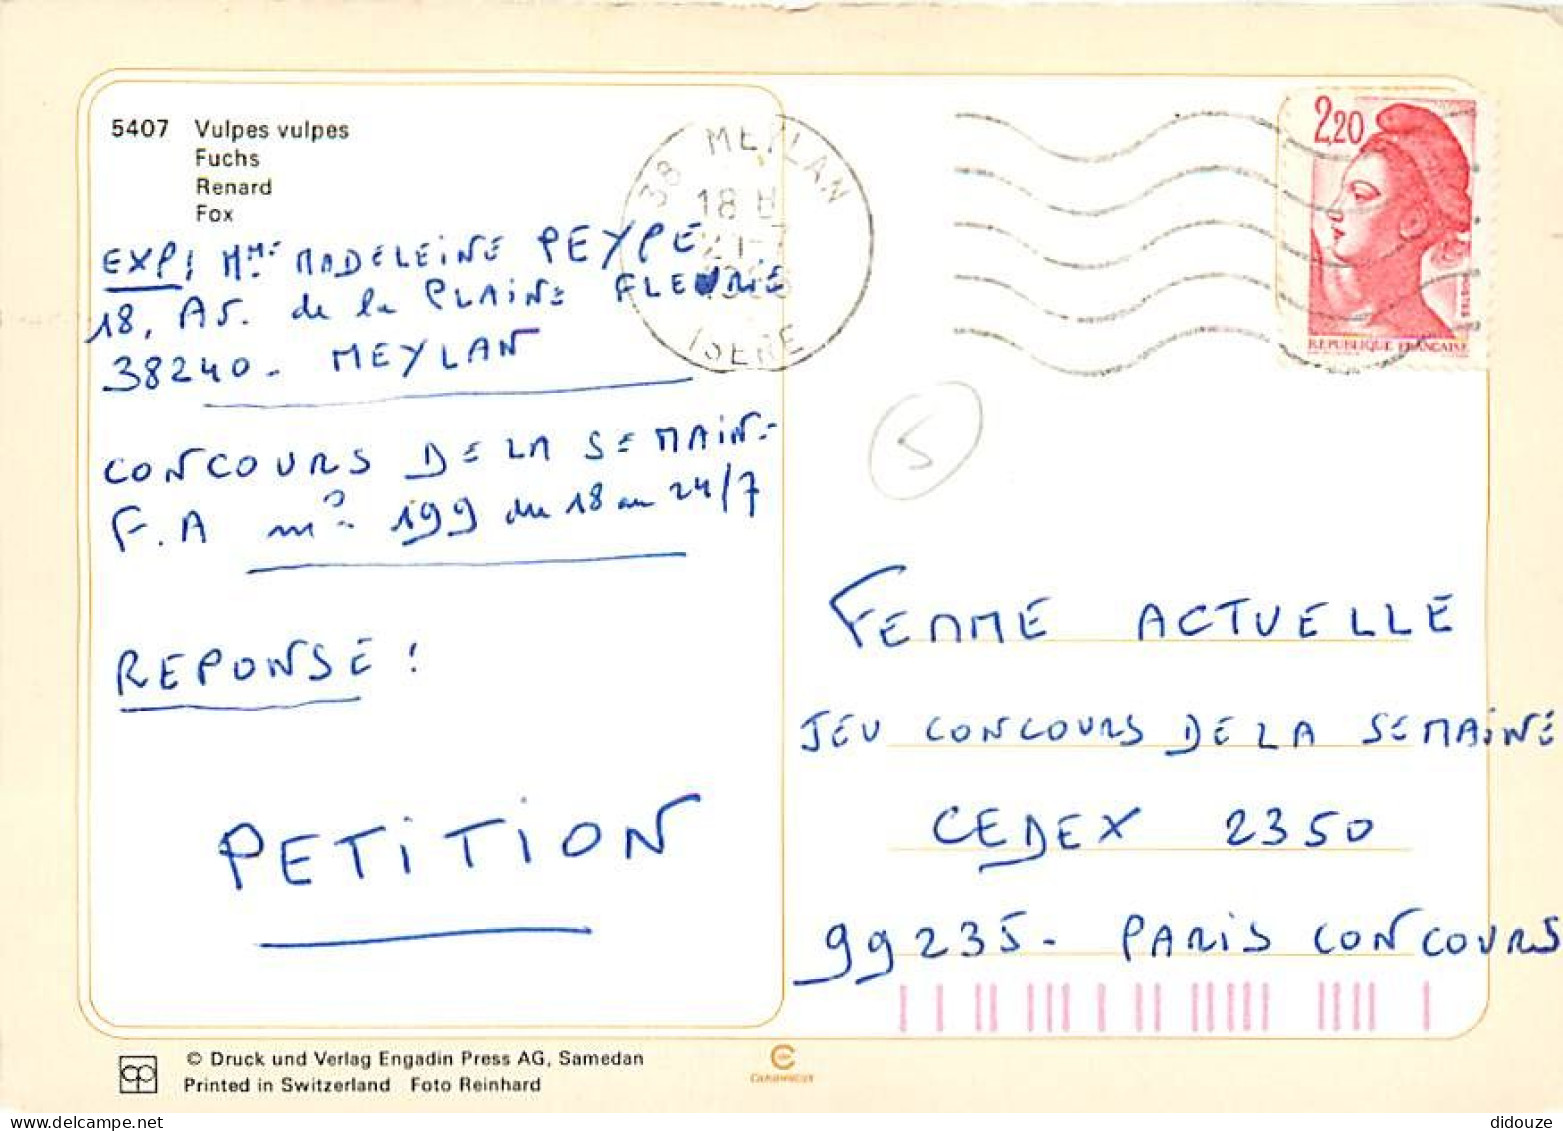 5407 Vulpes vulpes
Fuchs
Renard
Fox
EXP: Mme MADELEINE PEYPE
18, AV. de la PLAINE FLEURIE
38240 - MEYLAN
CONCOURS DE LA SEMAINE
F.A n° 199 du 18 au 24/7
REPONSE :
PETITION
© Druck und Verlag Engadin Press AG, Samedan
Printed in Switzerland Foto Reinhard
38 MEYLAN
18 H
ISERE
2,20
REPUBLIQUE FRANÇAISE
5
FEMME ACTUELLE
JEU CONCOURS DE LA SEMAINE
CEDEX 2350
99235 - PARIS CONCOURS
didouze